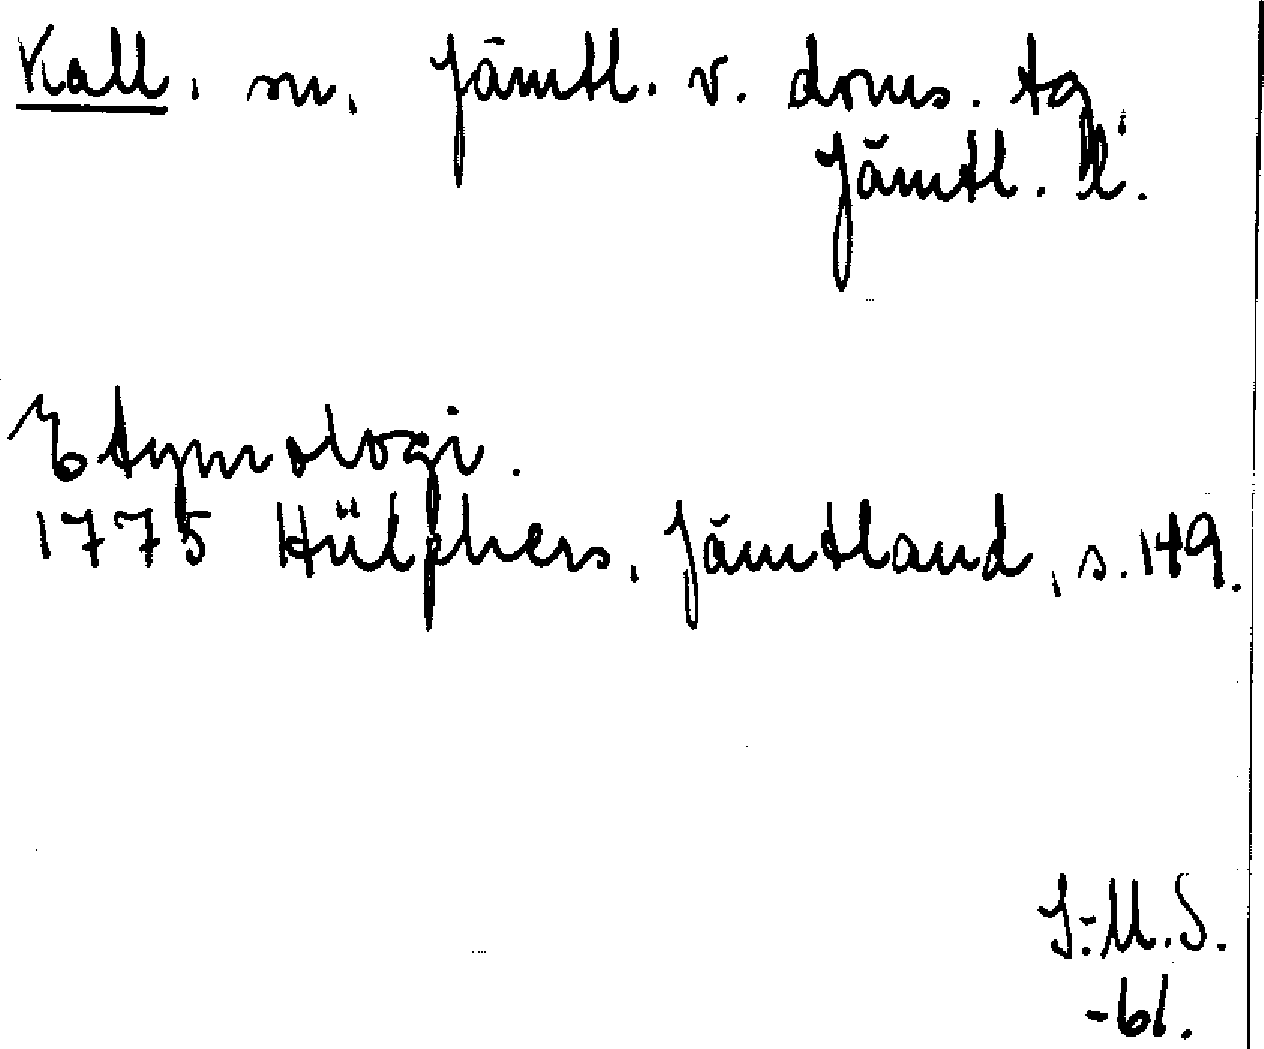 Kall, sn, Jämtl. v. doms. tg
Jämtl. l.
Etymologi.
1775 Hülphers, Jämtland, s. 149.
I-M.S.
-61.